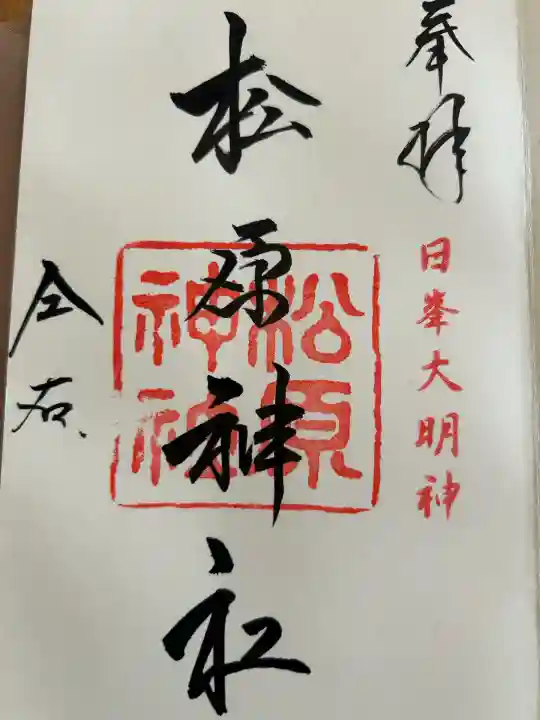 奉拝
日峯大明神
松原神社
松原神社